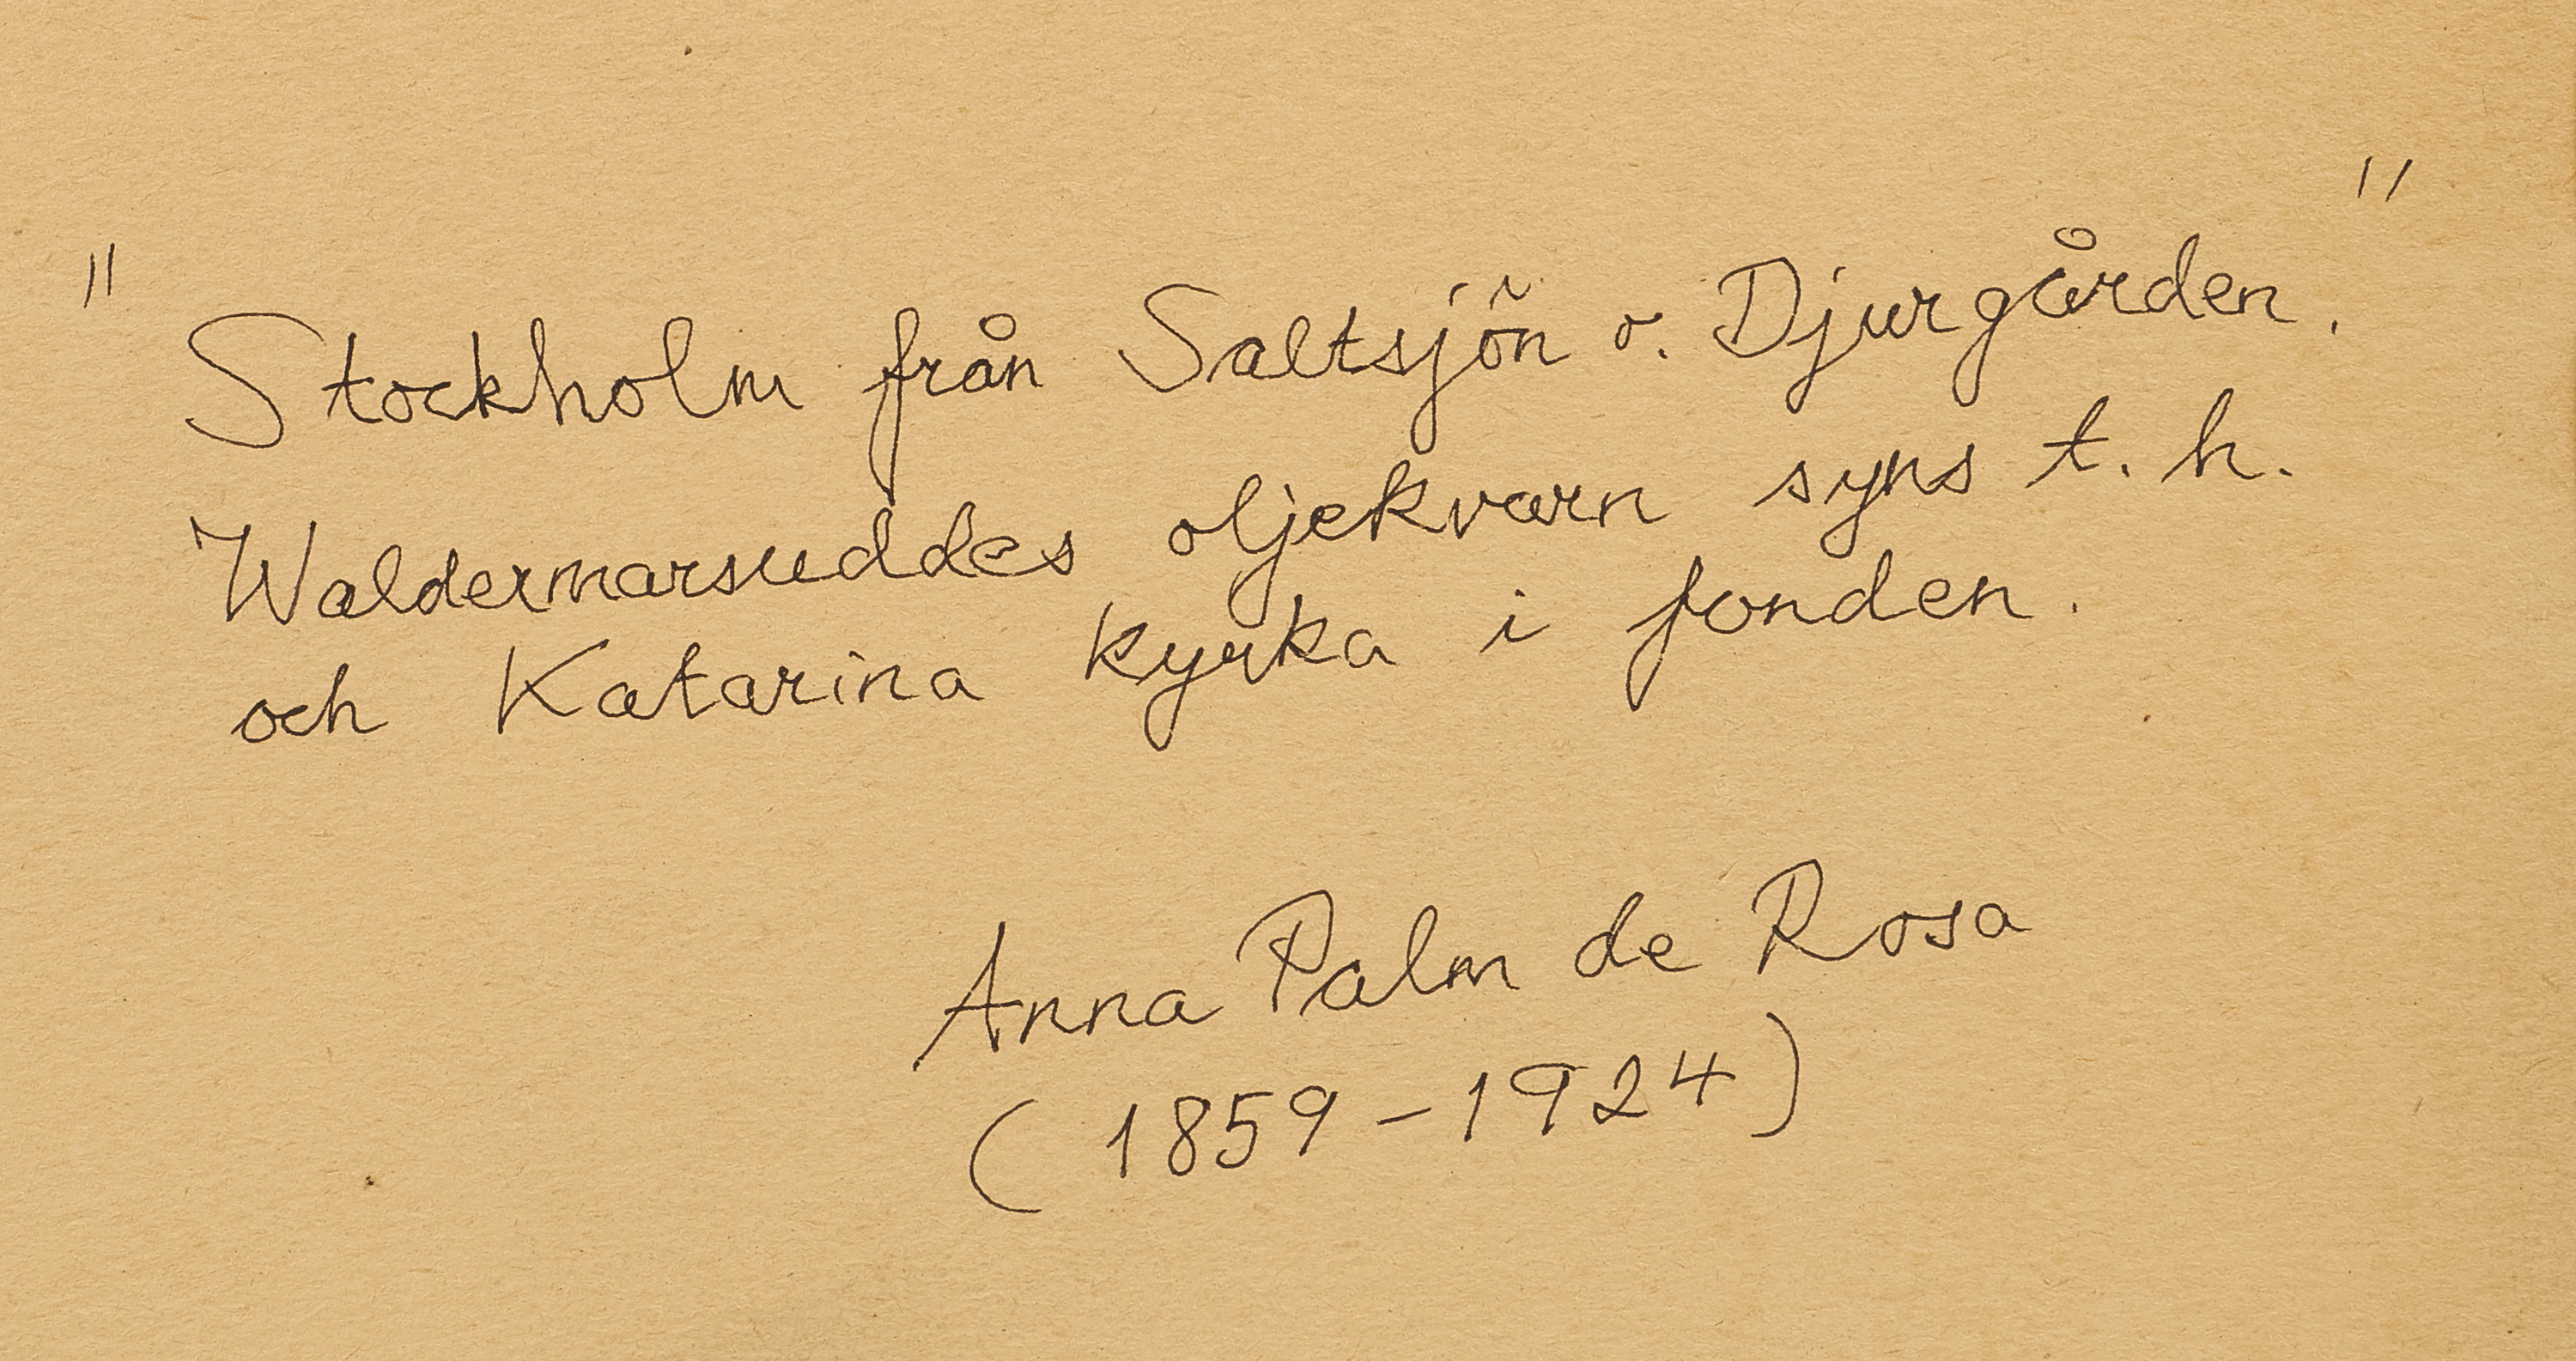 "Stockholm från Saltsjön o. Djurgården."
Waldermarsuddes oljekvarn syns t. h.
och Katarina kyrka i fonden.
Anna Palm de Rosa
(1859-1924)